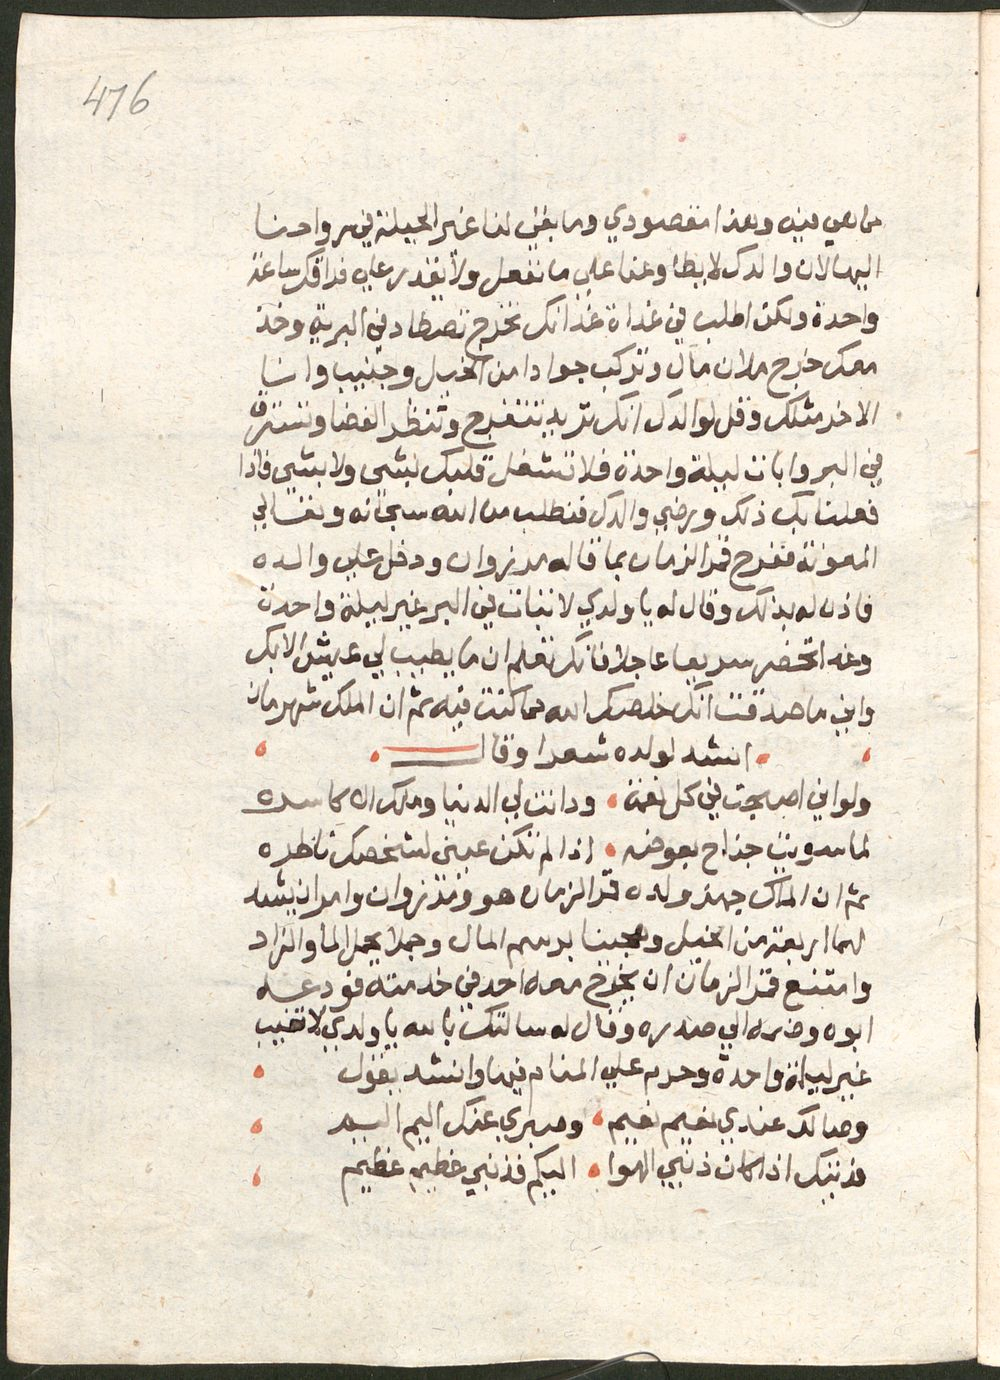 476
ما هي فيه وهذا مقصودي وما بقي لنا غير الحيلة في رواحنا
اليها لان والدك لا يطاوعنا علي ما نفعل ولا يقدر علي فراقك ساعة
واحدة ولكن اطلب في غداة غدا انك تخرج تصطاد في البرية وخذ
معك خرج ملان مال وتركب جوادا من الخيل وجنيب وانا
الاخر مثلك وقل لوالدك انك تريد تتفرج وتنظر الفضا وتستنزق
في البر وابات ليلة واحدة فلا تشغل قلبك لشي ولا بشي فاذا
فعلنا بك ذلك ورضي والدك فنطلب من الله سبحانه وتعالي
المعونة ففرح قمر الزمان بما قاله مرزوان ودخل علي والده
فاذن له بذلك وقال له يا ولدي لا تبات في البر غير ليلة واحدة
وغد احضر سريعا عاجلا فانك تعلم ان ما يطيب لي عيش الا بك
واني ما صدقت انك خلصك الله مما كنت فيه ثم ان الملك شهرمان
انشد لولده شعرا وقال
ولو اني اصبحت في كل نعمة • ودانت لي الدنيا وملك الاكاسره
لما سويت جناح بعوضه • اذا لم تكن عيني لشخصك ناظره
ثم ان الملك جهز ولده قمر الزمان هو ومرزوان وامر ان يشد
لهما اربعة من الخيل وهجينا برسم المال وجملا يحمل الما والزاد
وامتنع قمر الزمان ان يخرج معه احد في خدمته فودعه
ابوه وضمه الي صدره وقال له سالتك بالله يا ولدي لا تغيب
غير ليلة واحدة وحرم علي المنام فيها وانشد يقول
وصالك عندي نعيم نعيم • وصبري عنك اليم اليم
فديتك اذا كان ذنبي الهوا • اليكم فذنبي عظيم عظيم